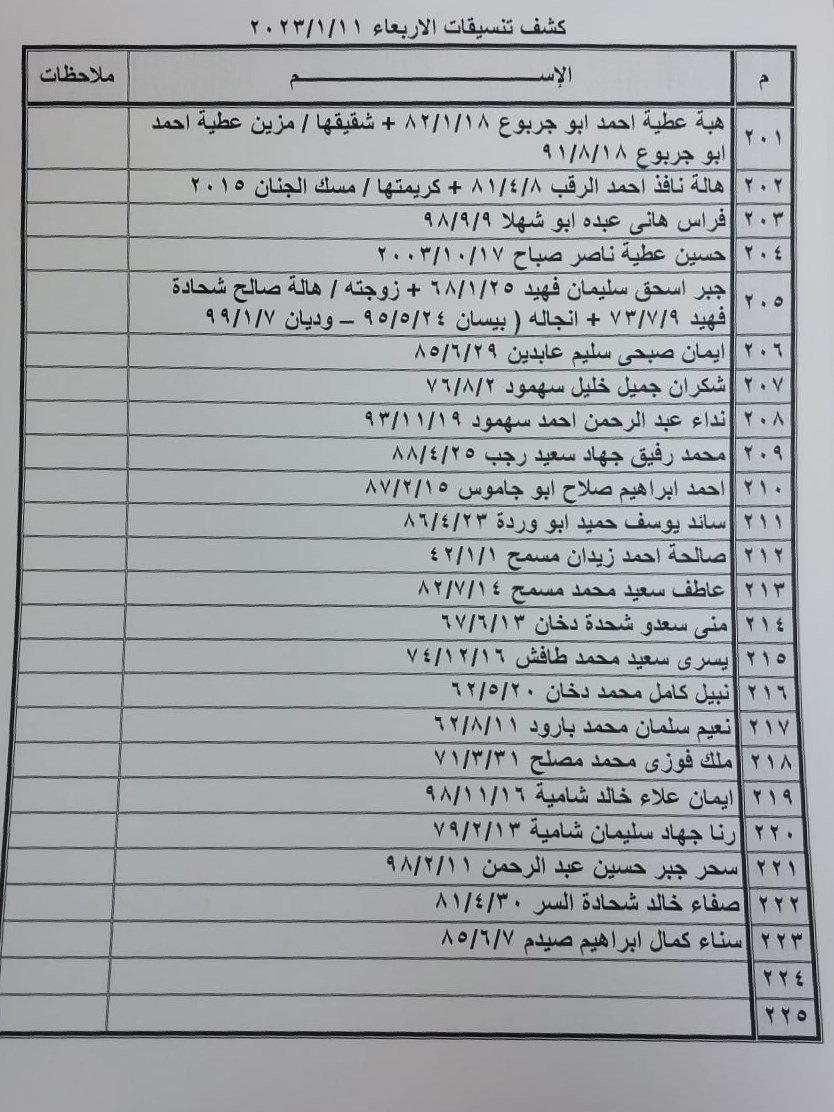 كشف تنسيقات الاربعاء ٢٠٢٣/١/١١
م الإســـــــــم ملاحظات
٢٠١ هبة عطية احمد ابو جربوع ٨٢/١/١٨ + شقيقها / مزين عطية احمد
ابو جربوع ٩١/٨/١٨
٢٠٢ هالة نافذ احمد الرقب ٨١/٤/٨ + كريمتها / مسك الجنان ٢٠١٥
٢٠٣ فراس هانى عبده ابو شهلا ٩٨/٩/٩
٢٠٤ حسين عطية ناصر صباح ٢٠٠٣/١٠/١٧
٢٠٥ جبر اسحق سليمان فهيد ٦٨/١/٢٥ + زوجته / هالة صالح شحادة
فهيد ٧٣/٧/٩ + انجاله ( بيسان ٩٥/٥/٢٤ – وديان ٩٩/١/٧
٢٠٦ ايمان صبحى سليم عابدين ٨٥/٦/٢٩
٢٠٧ شكران جميل خليل سهمود ٧٦/٨/٢
٢٠٨ نداء عبد الرحمن احمد سهمود ٩٣/١١/١٩
٢٠٩ محمد رفيق جهاد سعيد رجب ٨٨/٤/٢٥
٢١٠ احمد ابراهيم صلاح ابو جاموس ٨٧/٢/١٥
٢١١ سائد يوسف حميد ابو وردة ٨٦/٤/٢٣
٢١٢ صالحة احمد زيدان مسمح ٤٢/١/١
٢١٣ عاطف سعيد محمد مسمح ٨٢/٧/١٤
٢١٤ منى سعدو شحدة دخان ٦٧/٦/١٣
٢١٥ يسرى سعيد محمد طافش ٧٤/١٢/١٦
٢١٦ نبيل كامل محمد دخان ٦٢/٥/٢٠
٢١٧ نعيم سلمان محمد بارود ٦٢/٨/١١
٢١٨ ملك فوزى محمد مصلح ٧١/٣/٣١
٢١٩ ايمان علاء خالد شامية ٩٨/١١/١٦
٢٢٠ رنا جهاد سليمان شامية ٧٩/٢/١٣
٢٢١ سحر جبر حسين عبد الرحمن ٩٨/٢/١١
٢٢٢ صفاء خالد شحادة السر ٨١/٤/٣٠
٢٢٣ سناء كمال ابراهيم صيدم ٨٥/٦/٧
٢٢٤
٢٢٥